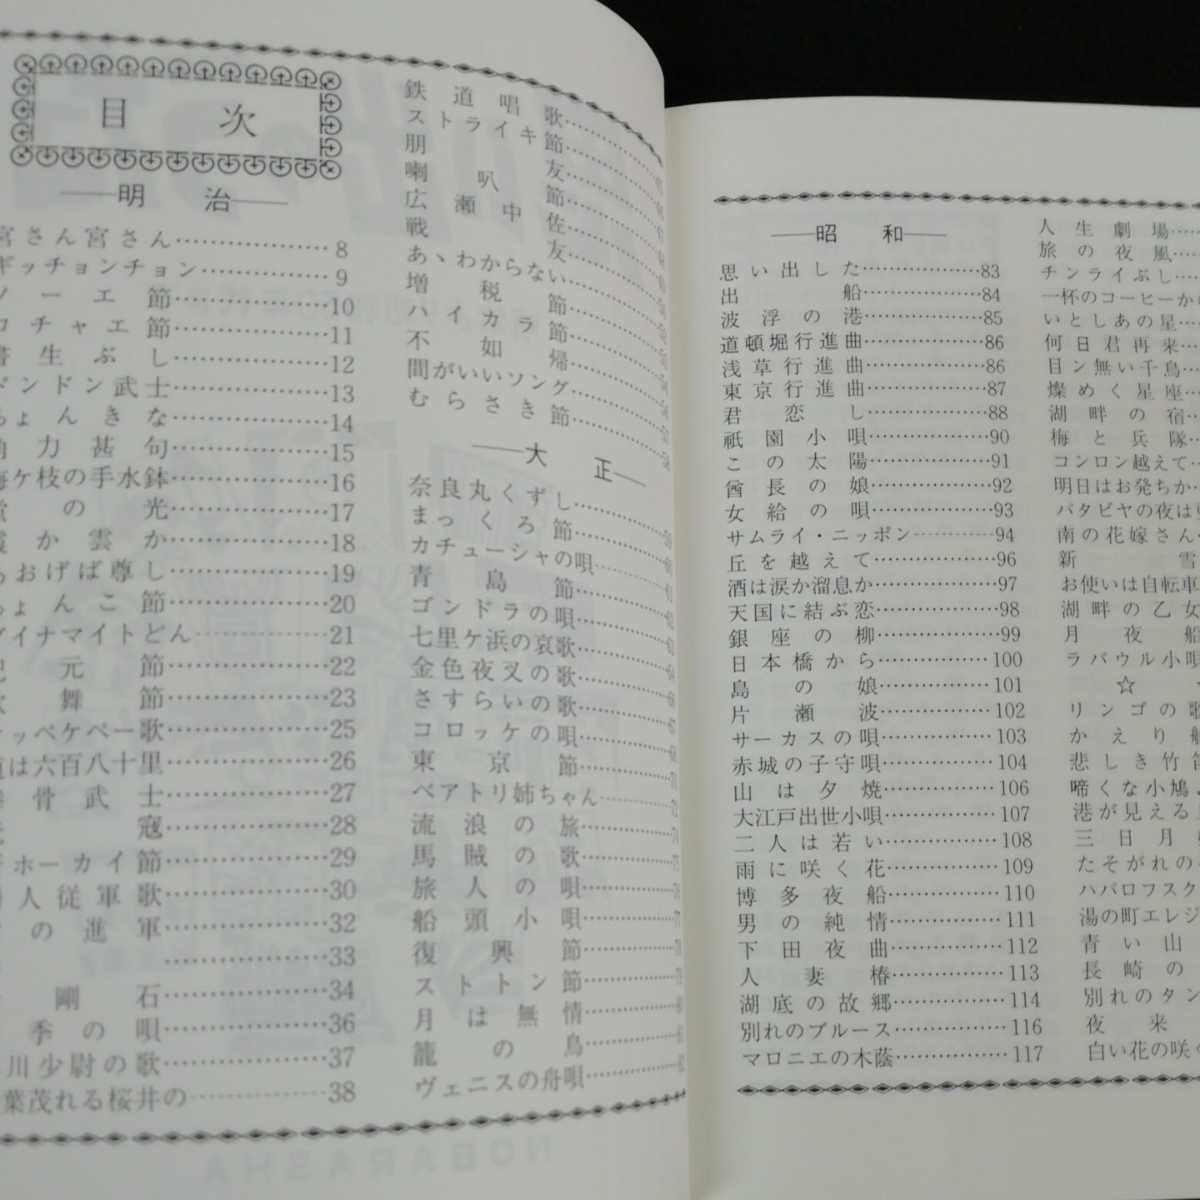 目次
明治
宮さん宮さん……………8
ギッチョンチョン…………9
ノーエ節……………10
コチャエ節……………11
書生ぶし……………12
ドンドン武士……………13
ちょんきな……………14
角力甚句……………15
梅ケ枝の手水鉢……………16
蛍の光……………17
霞か雲か……………18
あおげば尊し……………19
ちょんこ節……………20
ダイナマイトどん……………21
紀元節……………22
歌舞節……………23
オッペケペー歌……………25
道は六百八十里……………26
骨武士……………27
元寇……………28
ホーカイ節……………29
婦人従軍歌……………30
の進軍……………32
……………33
金剛石……………34
四季の唄……………36
川少尉の歌……………37
葉茂れる桜井の……………38
鉄道唱歌
ストライキ節
朋友
喇叭節
広瀬中佐
戦友
あゝわからない
増税節
ハイカラ節
不如帰
間がいいソング
むらさき節
大正
奈良丸くずし
まっくろ節
カチューシャの唄
青島節
ゴンドラの唄
七里ケ浜の哀歌
金色夜叉の歌
さすらいの歌
コロッケの唄
東京節
ベアトリ姉ちゃん
流浪の旅
馬賊の歌
旅人の唄
船頭小唄
復興節
ストトン節
月は無情
籠の鳥
ヴェニスの舟唄
NOBARASHA
昭和
思い出した……………83
出船……………84
波浮の港……………85
道頓堀行進曲……………86
浅草行進曲……………86
東京行進曲……………87
君恋し……………88
祇園小唄……………90
この太陽……………91
酋長の娘……………92
女給の唄……………93
サムライ・ニッポン…………94
丘を越えて……………96
酒は涙か溜息か……………97
天国に結ぶ恋……………98
銀座の柳……………99
日本橋から……………100
島の娘……………101
片瀬波……………102
サーカスの唄……………103
赤城の子守唄……………104
山は夕焼……………106
大江戸出世小唄……………107
二人は若い……………108
雨に咲く花……………109
博多夜船……………110
男の純情……………111
下田夜曲……………112
人妻椿……………113
湖底の故郷……………114
別れのブルース……………116
マロニエの木蔭……………117
人生劇場
旅の夜風
チンライぶし
一杯のコーヒーか
いとしあの星
何日君再来
目ン無い千鳥
燦めく星座
湖畔の宿
梅と兵隊
コンロン越えて
明日はお発ちか
バタビヤの夜は
南の花嫁さん
新雪
お使いは自転車
湖畔の乙女
月夜船
ラバウル小唄
☆
リンゴの歌
かえり船
悲しき竹笛
啼くな小鳩
港が見える
三日月
たそがれの
ハバロフスク
湯の町エレジ
青い山
長崎の
別れのタン
夜来
白い花の咲く